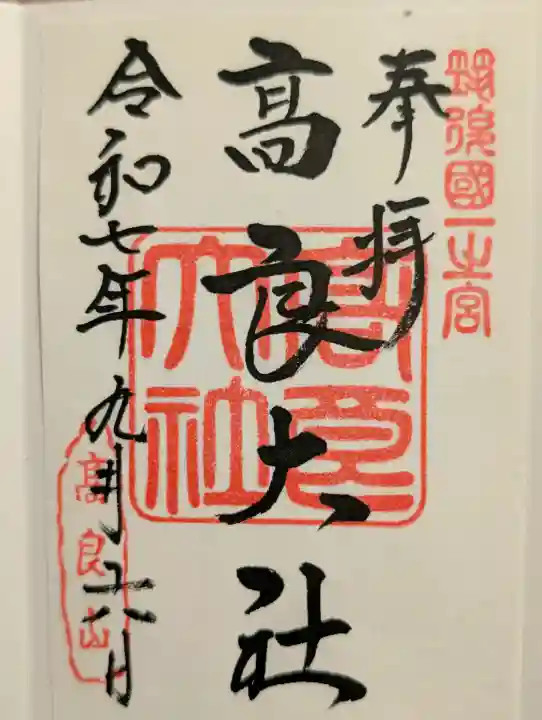 筑後國一之宮
奉拝
髙良大社
高良大社
令和七年九月十六日
高良山